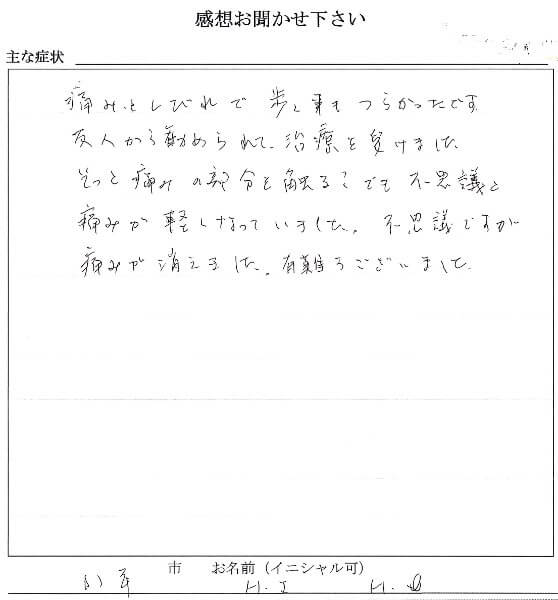 感想お聞かせ下さい
主な症状
痛みとしびれで歩く事もつらかったです
友人から勧められて、治療を受けました
そっと痛みの部分を触るだけでも不思議と
痛みが軽くなっていました。不思議ですが
痛みが消えました。有難うございました
市 お名前（イニシャル可）
H.I H.